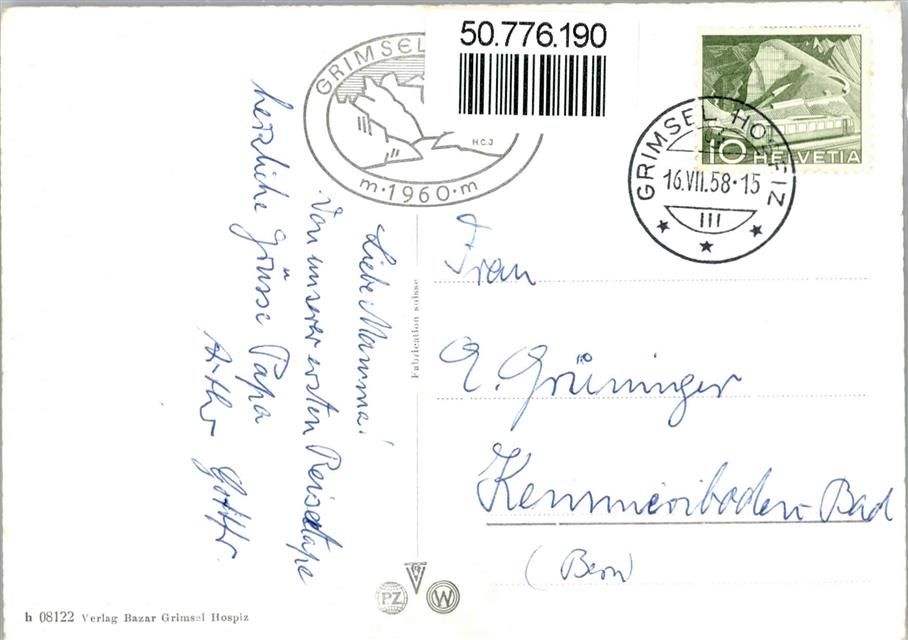 50.776.190
GRIMSEL
H.C.J
m·1960·m
GRIMSEL HOSPIZ
16.VII.58·15
III
10 HELVETIA
Liebe Mamma!
Von unserer ersten Reiseetape
herzliche Grüsse Papa
Fabrication suisse
Frau
E. Grüninger
Kemmeriboden-Bad
(Bern)
PZ
W
h 08122 Verlag Bazar Grimsel Hospiz